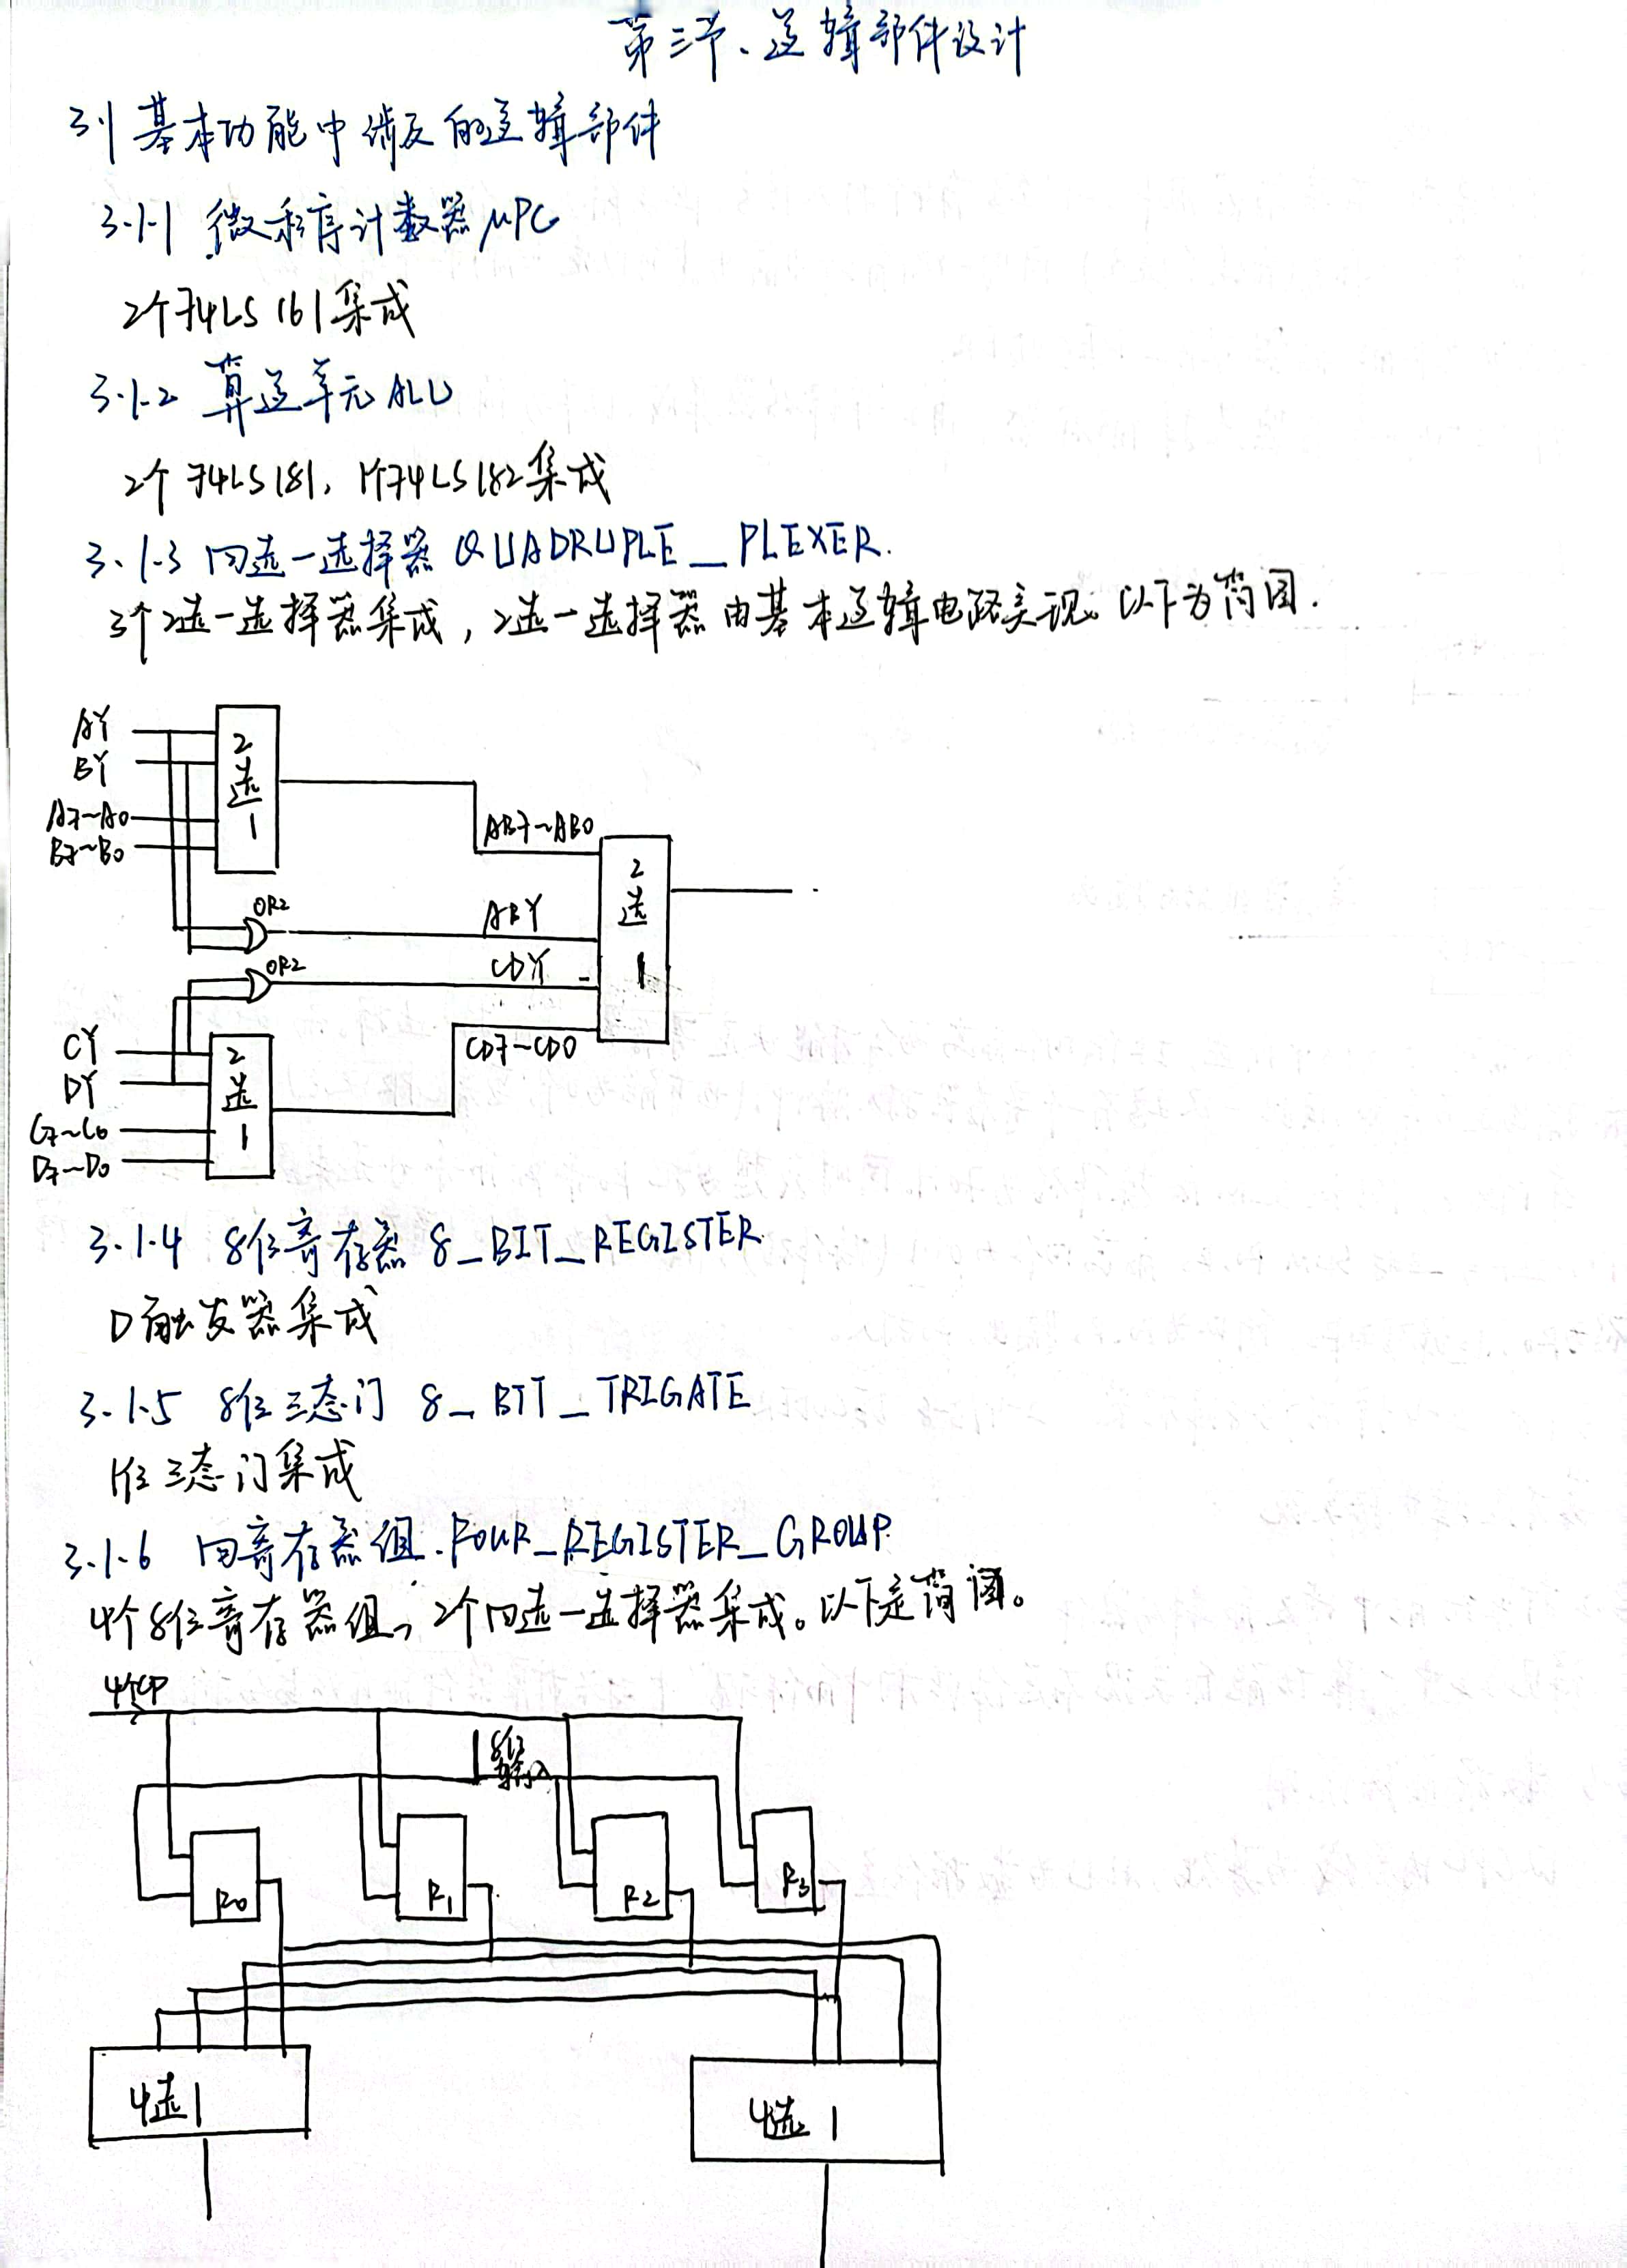 第三节、逻辑部件设计
3.1 基本功能中涉及的逻辑部件
3.1.1 微程序计数器 μPC
2个74LS161集成
3.1.2 算逻单元 ALU
2个74LS181，1个74LS182集成
3.1.3 四选一选择器 QUADRUPLE_PLEXER.
3个2选一选择器集成，2选一选择器由基本逻辑电路实现。以下为简图.
AY
BY
A7~A0
B7~B0
2选1
AB7~AB0
OR2
ABY
2选1
OR2
CDY
CD7~CD0
CY
DY
C7~C0
D7~D0
2选1
3.1.4 8位寄存器 8_BIT_REGISTER
D触发器集成
3.1.5 8位三态门 8_BIT_TRIGATE
1位三态门集成
3.1.6 四寄存器组.FOUR_REGISTER_GROUP
4个8位寄存器组，2个四选一选择器集成。以下是简图。
4个CP
8位输入
R0
R1
R2
R3
4选1
4选1